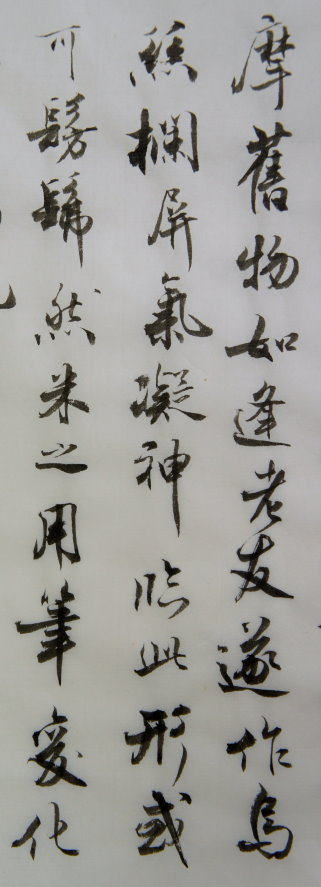 摩舊物如逢老友遂作烏
絲欄屏氣凝神臨此形或
可髣髴然米之用筆變化